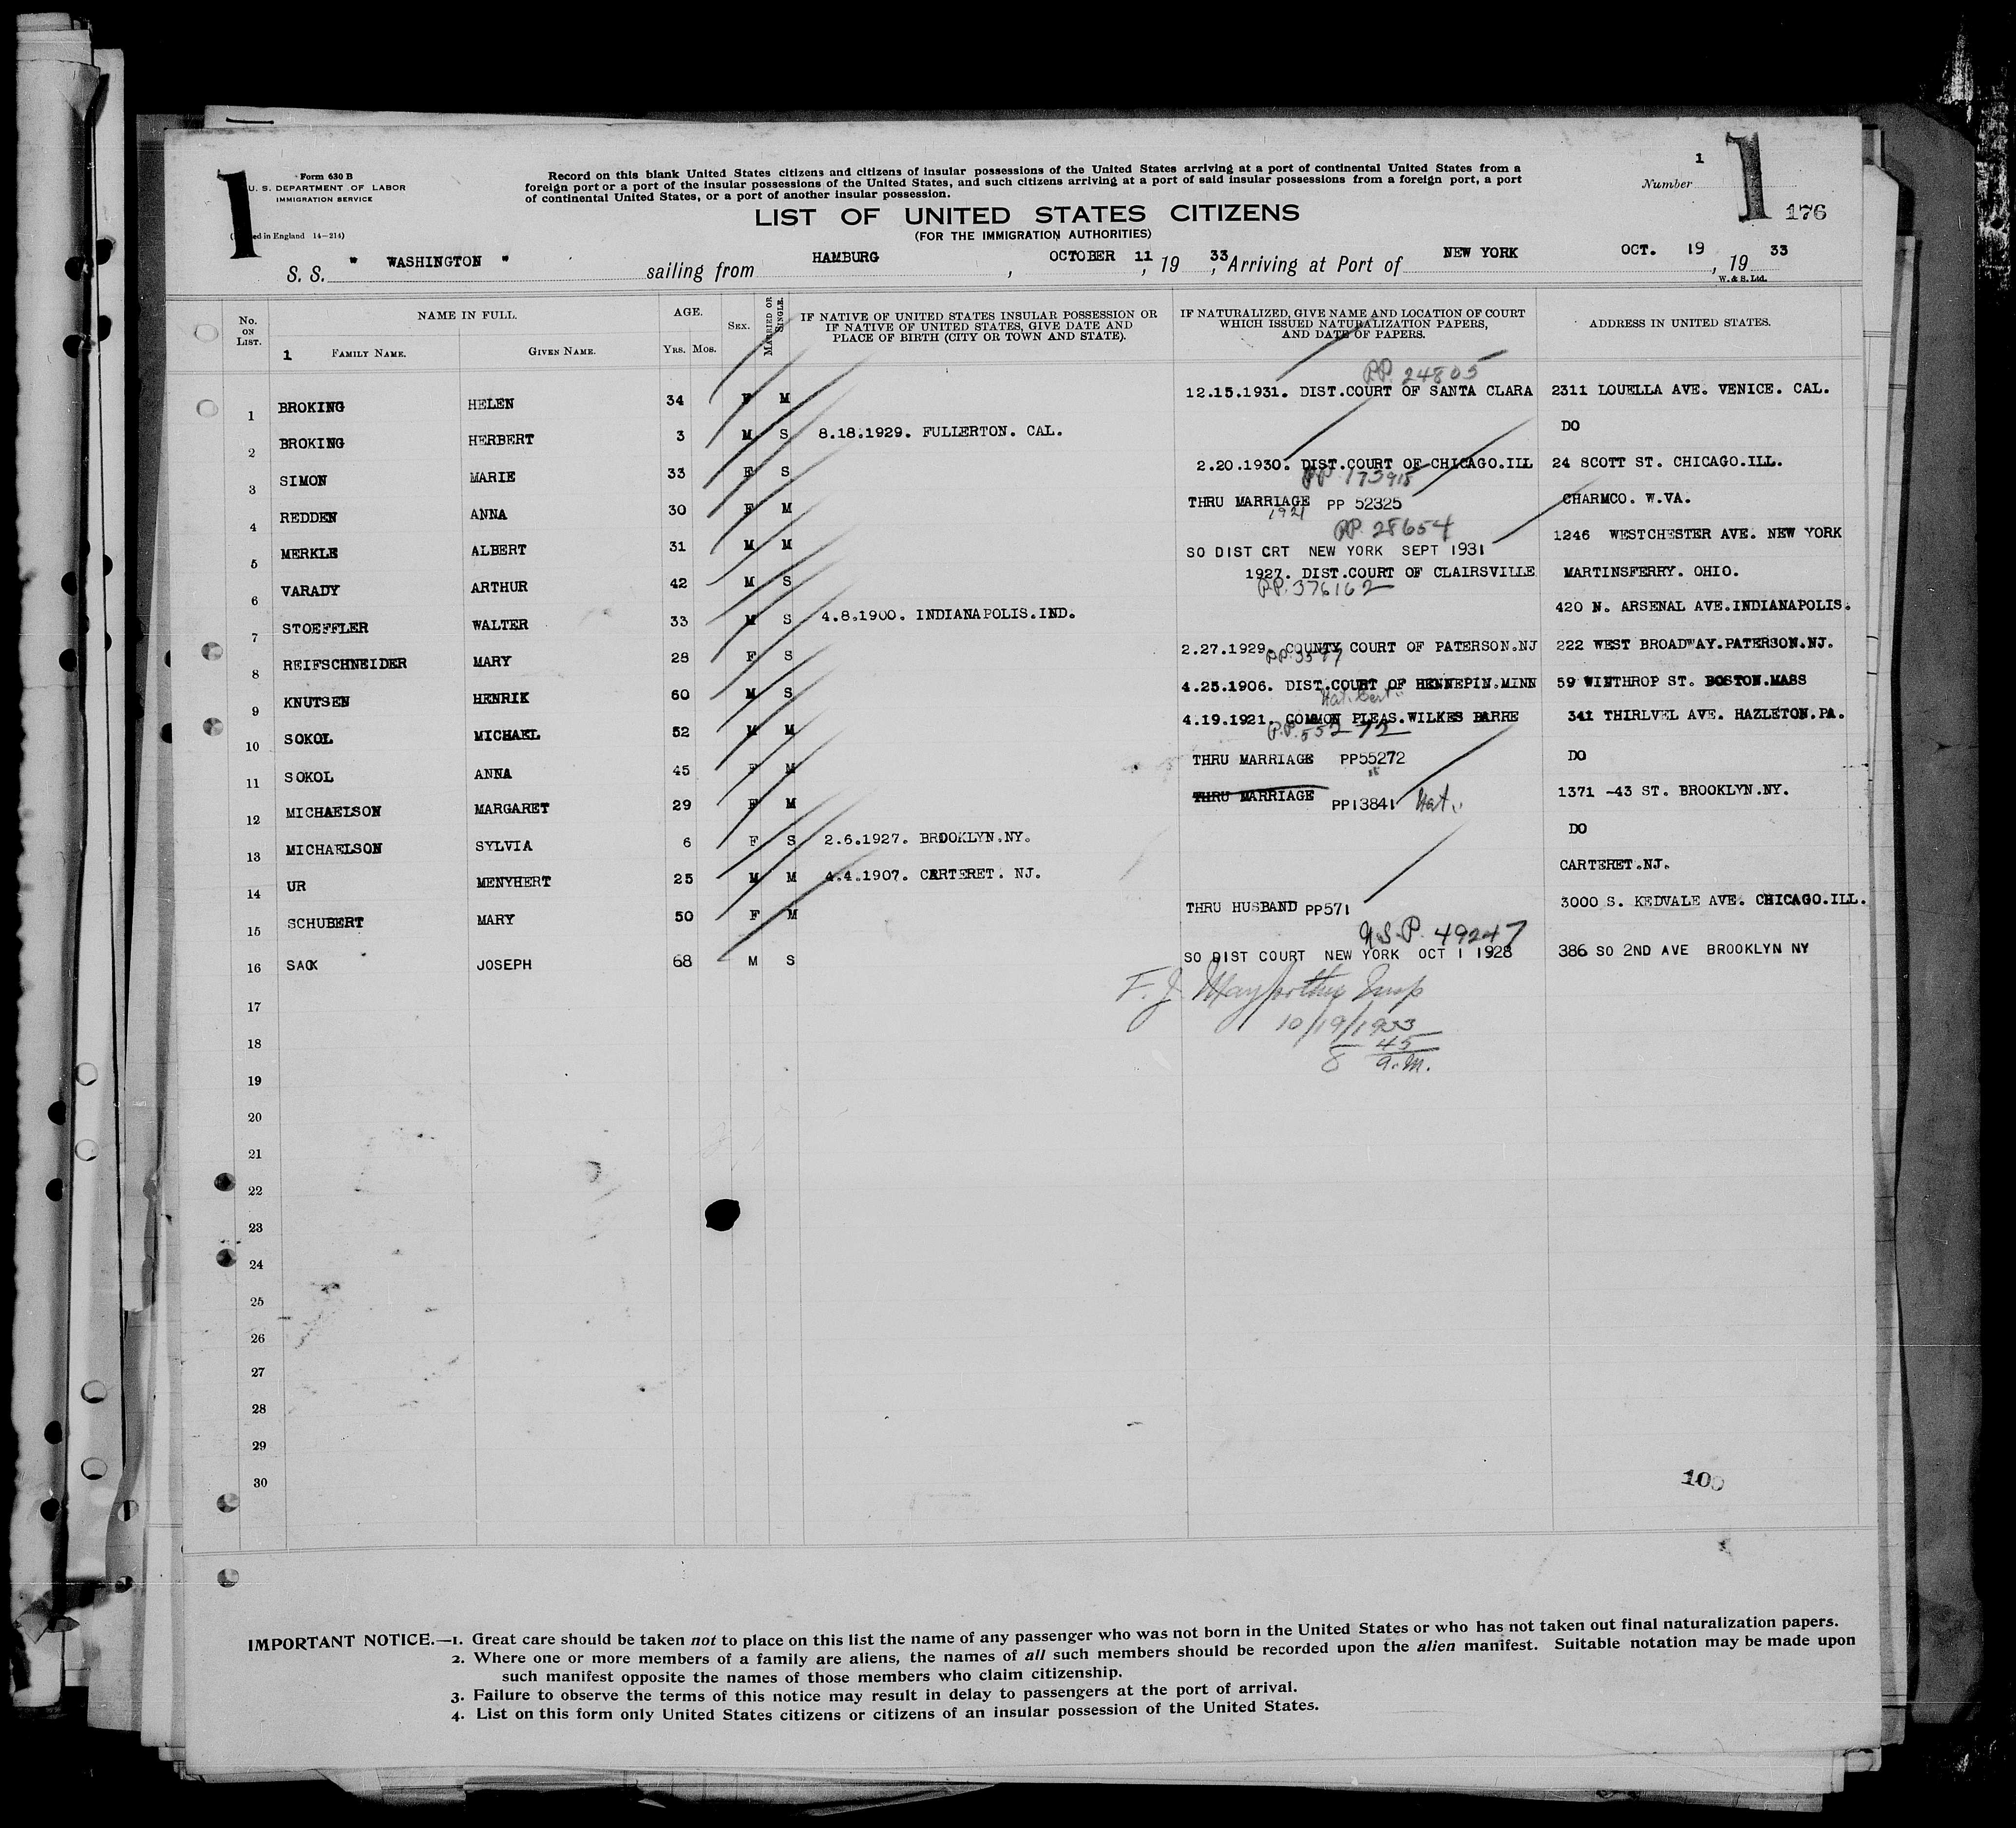 1
Form 630 B
U. S. DEPARTMENT OF LABOR
IMMIGRATION SERVICE
ed in England 14—214)
Record on this blank United States citizens and citizens of insular possessions of the United States arriving at a port of continental United States from a
foreign port or a port of the insular possessions of the United States, and such citizens arriving at a port of said insular possessions from a foreign port, a port
of continental United States, or a port of another insular possession.
LIST OF UNITED STATES CITIZENS
(FOR THE IMMIGRATION AUTHORITIES)
Number 1
1
176
S. S. " WASHINGTON " sailing from HAMBURG, OCTOBER 11, 19 33, Arriving at Port of NEW YORK OCT. 19, 19 33
W. & S. Ltd.
No. ON LIST. NAME IN FULL. AGE. SEX. MARRIED OR SINGLE. IF NATIVE OF UNITED STATES INSULAR POSSESSION OR IF NATIVE OF UNITED STATES, GIVE DATE AND PLACE OF BIRTH (CITY OR TOWN AND STATE). IF NATURALIZED, GIVE NAME AND LOCATION OF COURT WHICH ISSUED NATURALIZATION PAPERS, AND DATE OF PAPERS. ADDRESS IN UNITED STATES.
1 FAMILY NAME. GIVEN NAME. YRS. MOS.
PP. 24805
1 BROKING HELEN 34 F M 12.15.1931. DIST.COURT OF SANTA CLARA 2311 LOUELLA AVE. VENICE. CAL.
2 BROKING HERBERT 3 M S 8.18.1929. FULLERTON. CAL. DO
3 SIMON MARIE 33 F S 2.20.1930. DIST.COURT OF CHICAGO.ILL 24 SCOTT ST. CHICAGO.ILL.
PP 173918
4 REDDEN ANNA 30 F M THRU MARRIAGE PP 52325 CHARMCO. W.VA.
1921
PP. 28654
5 MERKLE ALBERT 31 M M SO DIST CRT NEW YORK SEPT 1931 1246 WESTCHESTER AVE. NEW YORK
6 VARADY ARTHUR 42 M S 1927. DIST.COURT OF CLAIRSVILLE MARTINSFERRY. OHIO.
PP. 376162
7 STOEFFLER WALTER 33 M S 4.8.1900. INDIANAPOLIS.IND. 420 N. ARSENAL AVE.INDIANAPOLIS.
8 REIFSCHNEIDER MARY 28 F S 2.27.1929. COUNTY COURT OF PATERSON.NJ 222 WEST BROADWAY.PATERSON.NJ.
9 KNUTSEN HENRIK 60 M S 4.25.1906. DIST.COURT OF HENNEPIN.MINN 59 WINTHROP ST. BOSTON.MASS
Nat. Cert.
10 SOKOL MICHAEL 52 M M 4.19.1921. COMMON PLEAS.WILKES BARRE 341 THIRLVEL AVE. HAZLETON.PA.
P.P. 55272
11 SOKOL ANNA 45 F M THRU MARRIAGE PP55272 DO
12 MICHAELSON MARGARET 29 F M THRU MARRIAGE PP13841 Nat. 1371 -43 ST. BROOKLYN.NY.
13 MICHAELSON SYLVIA 6 F S 2.6.1927. BROOKLYN.NY. DO
14 UR MENYHERT 25 M M 4.4.1907. CARTERET. NJ. CARTERET.NJ.
15 SCHUBERT MARY 50 F M THRU HUSBAND PP571 3000 S. KEDVALE AVE. CHICAGO.ILL.
U.S.P. 49247
16 SACK JOSEPH 68 M S SO DIST COURT NEW YORK OCT 1 1928 386 SO 2ND AVE BROOKLYN NY
F. J. Insp
17
10/19/1933
18
8 45 a.m.
19
20
21
22
23
24
25
26
27
28
29
30
100
IMPORTANT NOTICE.—1. Great care should be taken not to place on this list the name of any passenger who was not born in the United States or who has not taken out final naturalization papers.
2. Where one or more members of a family are aliens, the names of all such members should be recorded upon the alien manifest. Suitable notation may be made upon
such manifest opposite the names of those members who claim citizenship.
3. Failure to observe the terms of this notice may result in delay to passengers at the port of arrival.
4. List on this form only United States citizens or citizens of an insular possession of the United States.